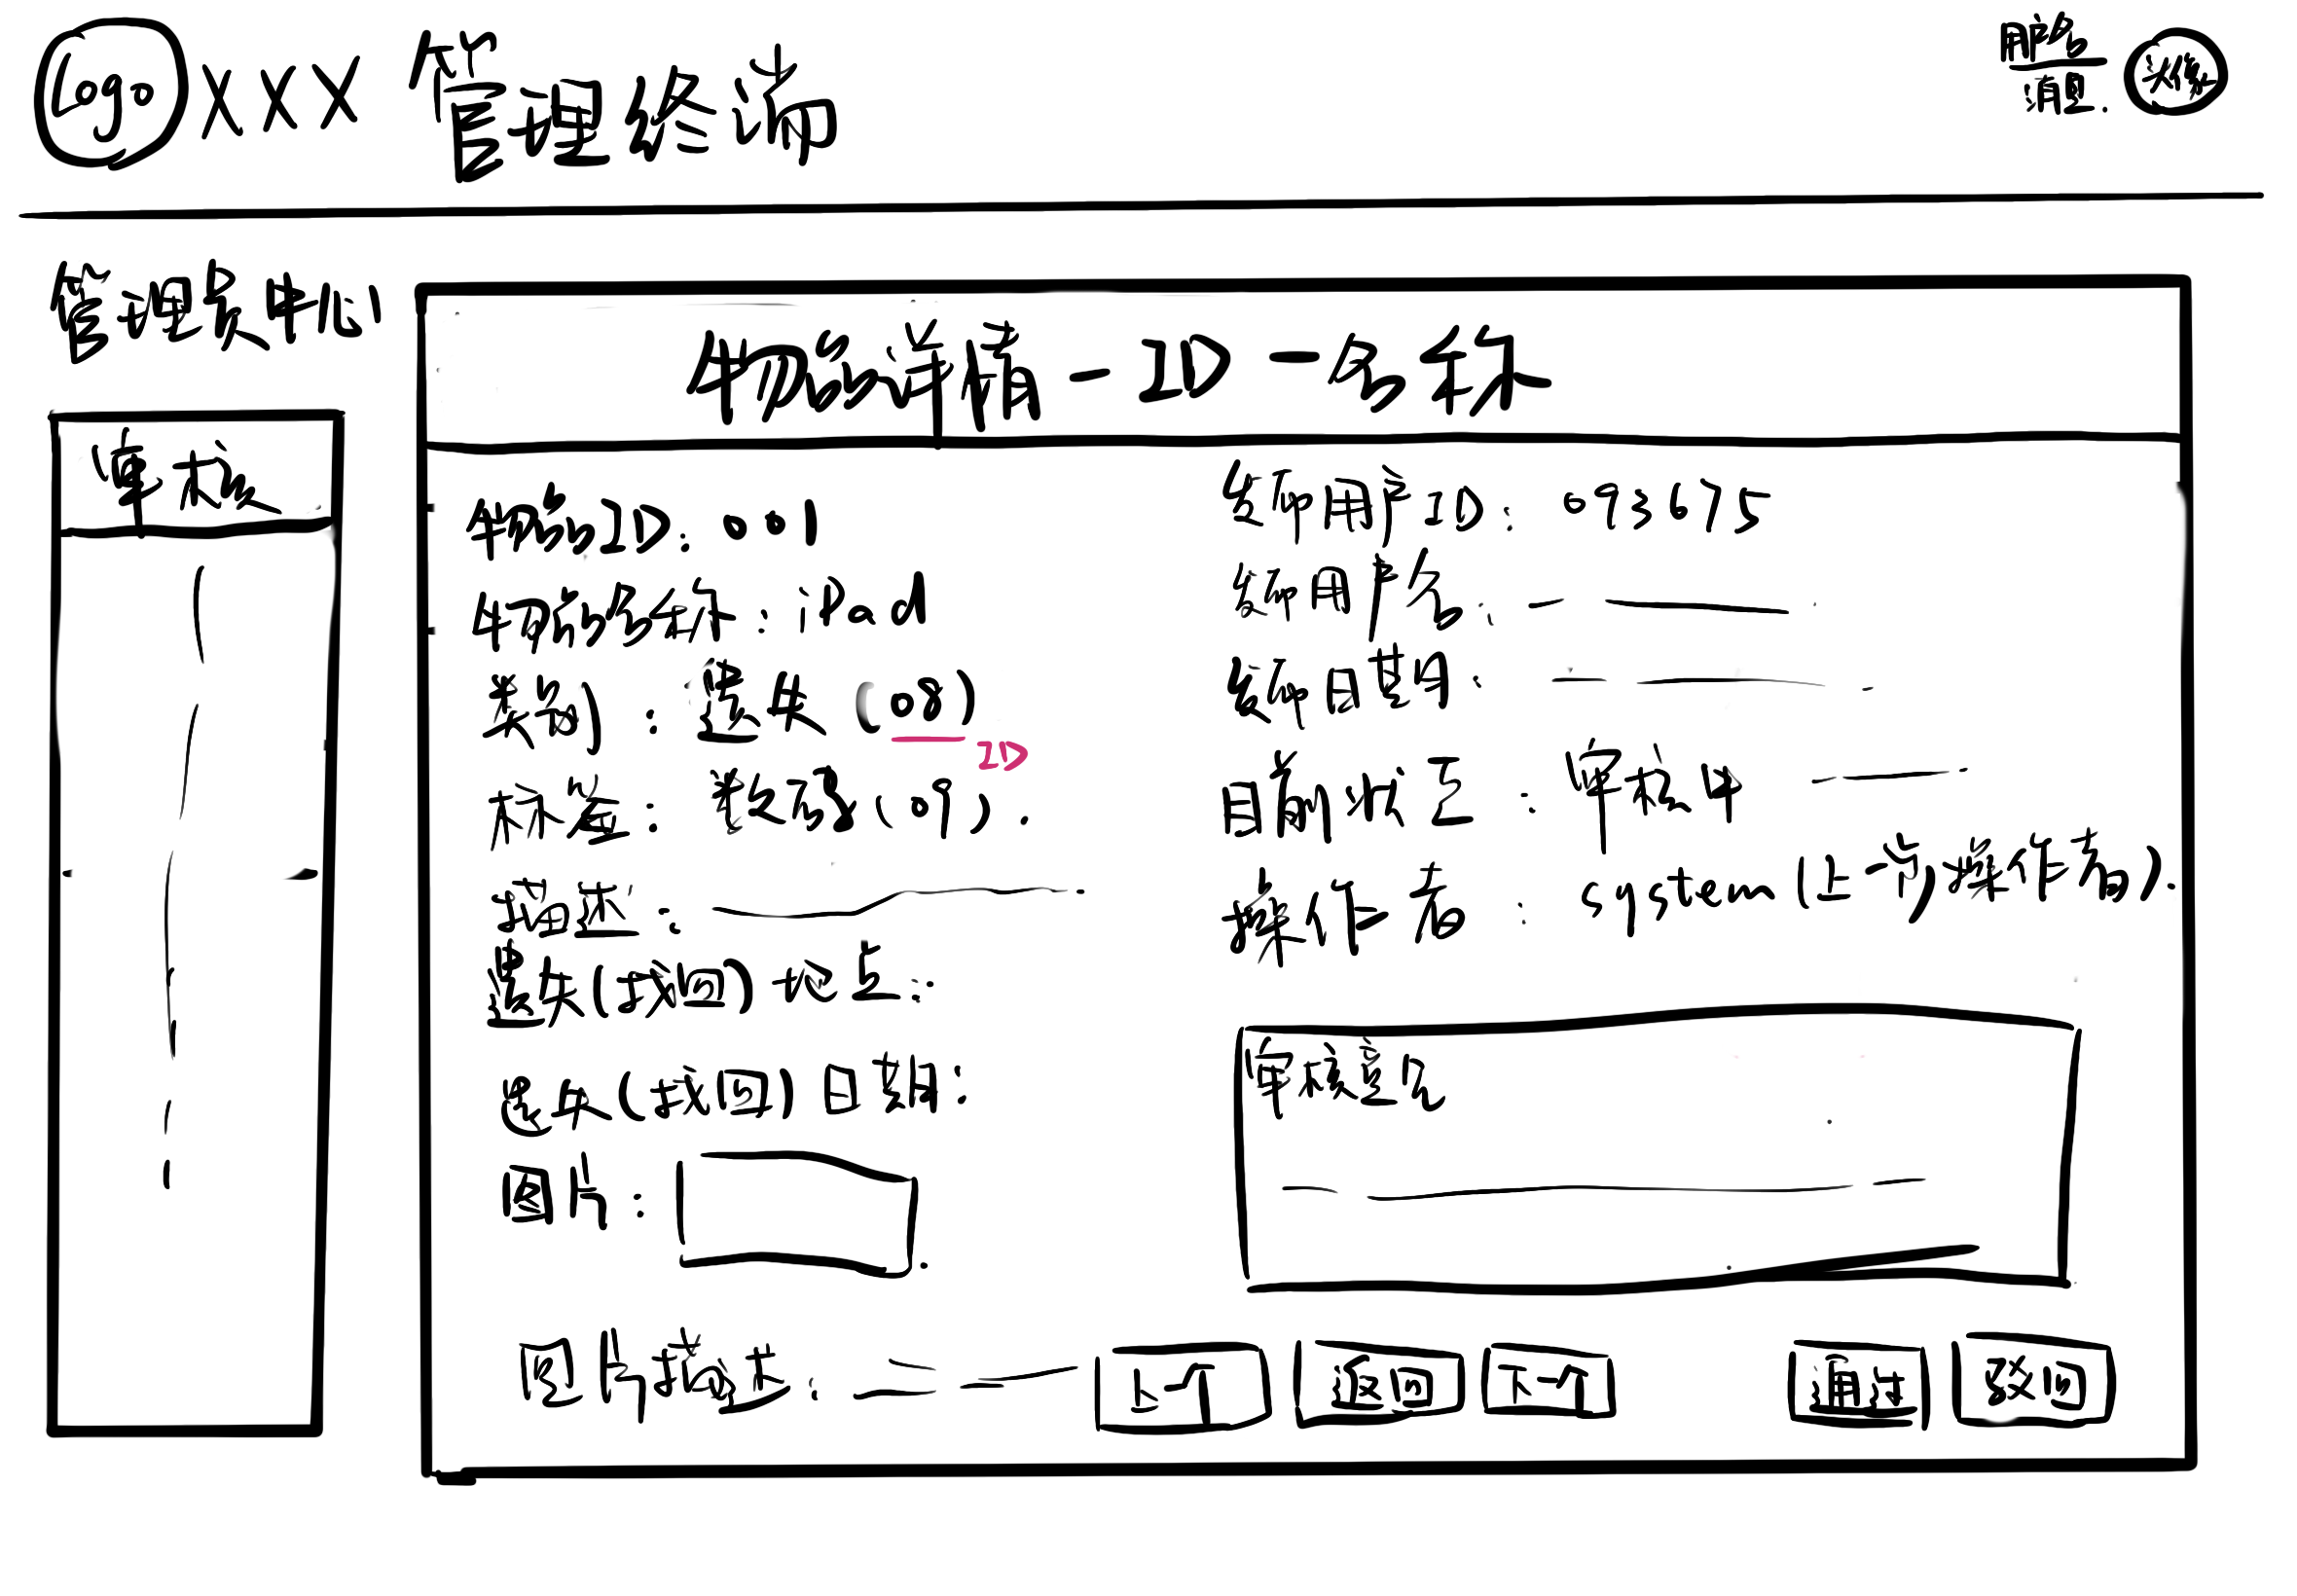 Logo XXX 管理终端
用户名
消息
头像
管理员中心
审核
物品详情-ID-名称
物品ID: 001
物品名称: iPad
类别: 遗失 (08)
ID
标签: 数码 (09).
描述:
遗失(找回)地点:
遗失(找回)日期:
图片:
图片描述:
发布用户ID: 093675
发布用户名:
发布日期:
目前状态: 审核中
操作者: system (上一前操作者).
审核意见
上一个
返回
下一个
通过
驳回